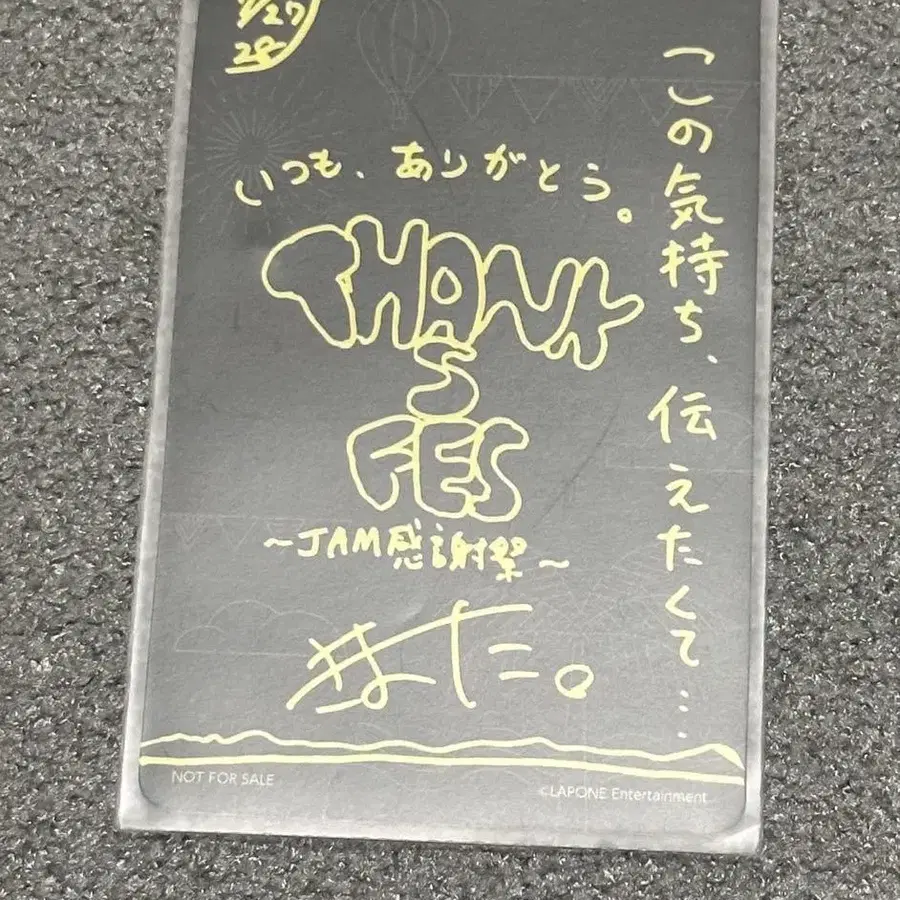 /27
28
この気持ち、伝えたくて…
いつも、ありがとう。
THANK
S
FES
~JAM感謝祭~
NOT FOR SALE
©LAPONE Entertainment